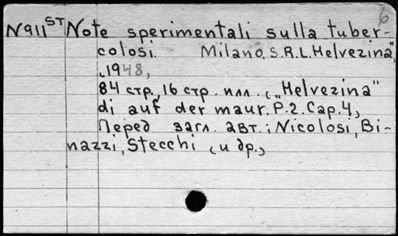 6
N911 ST Note sperimentali sulla tuber-
colosi. Milano, S.R.L. Helvezina",
,1948,
84 стр., 16 стр. илл. („Helvezina"
di auf der maur. P.2. Cap. 4,
Перед загл. авт.: Nicolosi, Bi-
nazzi, Stecchi (и др.,